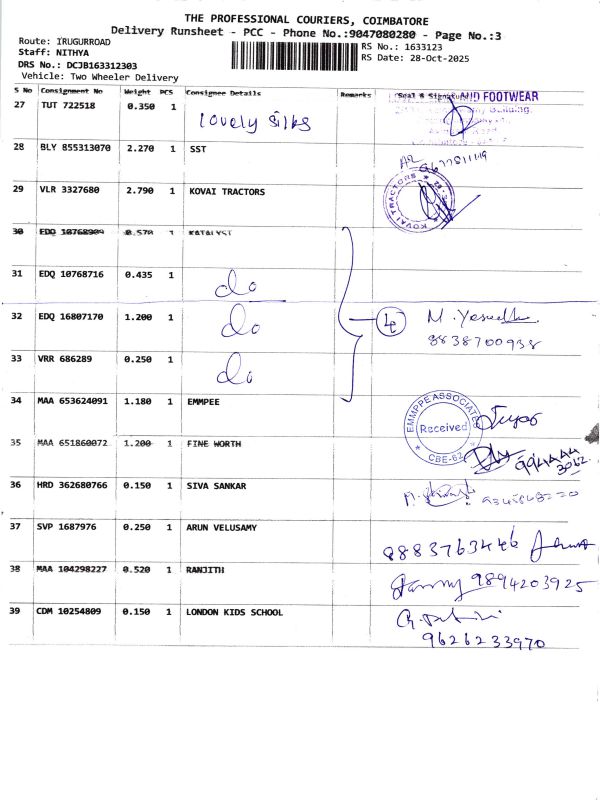 THE PROFESSIONAL COURIERS, COIMBATORE
Delivery Runsheet - PCC - Phone No.:9047080280 - Page No.:3
Route: IRUGURROAD
Staff: NITHYA
DRS No.: DCJB163312303
Vehicle: Two Wheeler Delivery
RS No.: 1633123
RS Date: 28-Oct-2025
S No Consignment No Weight PCS Consignee Details Remarks Seal & Signature
AND FOOTWEAR
Building,
27 TUT 722518 0.350 1 Lovely Silks
28 BLY 855313070 2.270 1 SST
29 VLR 3327680 2.790 1 KOVAI TRACTORS
KOVAI TRACTORS
30 EDQ 10768909 0.570 1 KATALYST
31 EDQ 10768716 0.435 1 do
32 EDQ 16807170 1.200 1 do
M. 
8838700938
33 VRR 686289 0.250 1 do
34 MAA 653624091 1.180 1 EMMPEE
EMMPPE ASSOCIATE
Received
CBE-62
35 MAA 651860072 1.200 1 FINE WORTH
36 HRD 362680766 0.150 1 SIVA SANKAR
37 SVP 1687976 0.250 1 ARUN VELUSAMY
8883763446
38 MAA 104298227 0.520 1 RANJITH
9894203925
39 CDM 10254809 0.150 1 LONDON KIDS SCHOOL
9626233970